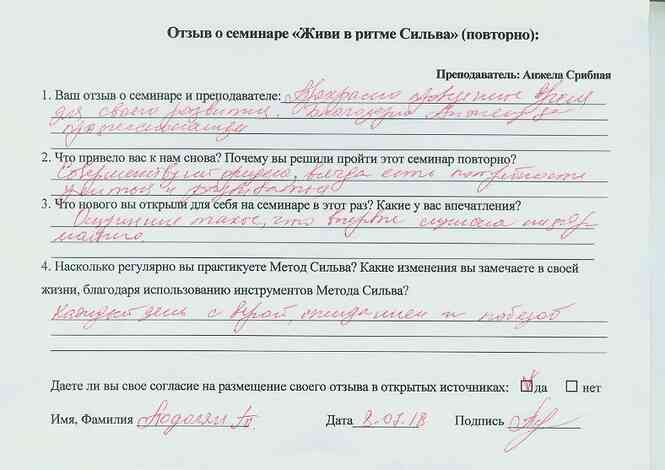 Отзыв о семинаре «Живи в ритме Сильва» (повторно):
Преподаватель: Анжела Срибная
1. Ваш отзыв о семинаре и преподавателе: Прекрасно проведенное время
для своего развития. Благодарю Анжелу за
профессионализм
2. Что привело вас к нам снова? Почему вы решили пройти этот семинар повторно?
всегда есть потребность
учиться и развиваться
3. Что нового вы открыли для себя на семинаре в этот раз? Какие у вас впечатления?
Ощущение такое, что впервые слушала
4. Насколько регулярно вы практикуете Метод Сильва? Какие изменения вы замечаете в своей
жизни, благодаря использованию инструментов Метода Сильва?
Каждый день с верой, ожиданием и победой
Даете ли вы свое согласие на размещение своего отзыва в открытых источниках: да нет
Имя, Фамилия Дата 2.07.18 Подпись